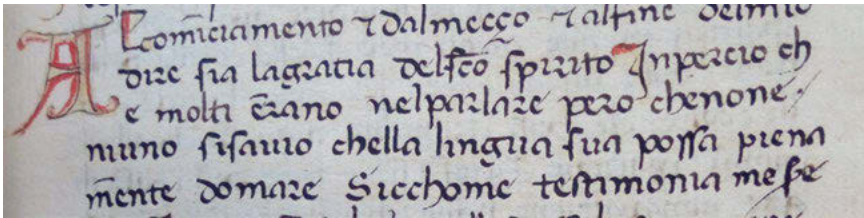 A Lcom̄ciamento ⁊ dalmecço ⁊ alfine delmio
dire sia lagratia delsc̄o spirito Inpercio ch
e molti ērano nelparlare pero chenone /
niuno sisauio chella lingua sua possa piena
m̄ente domare Sicchome testimonia messe